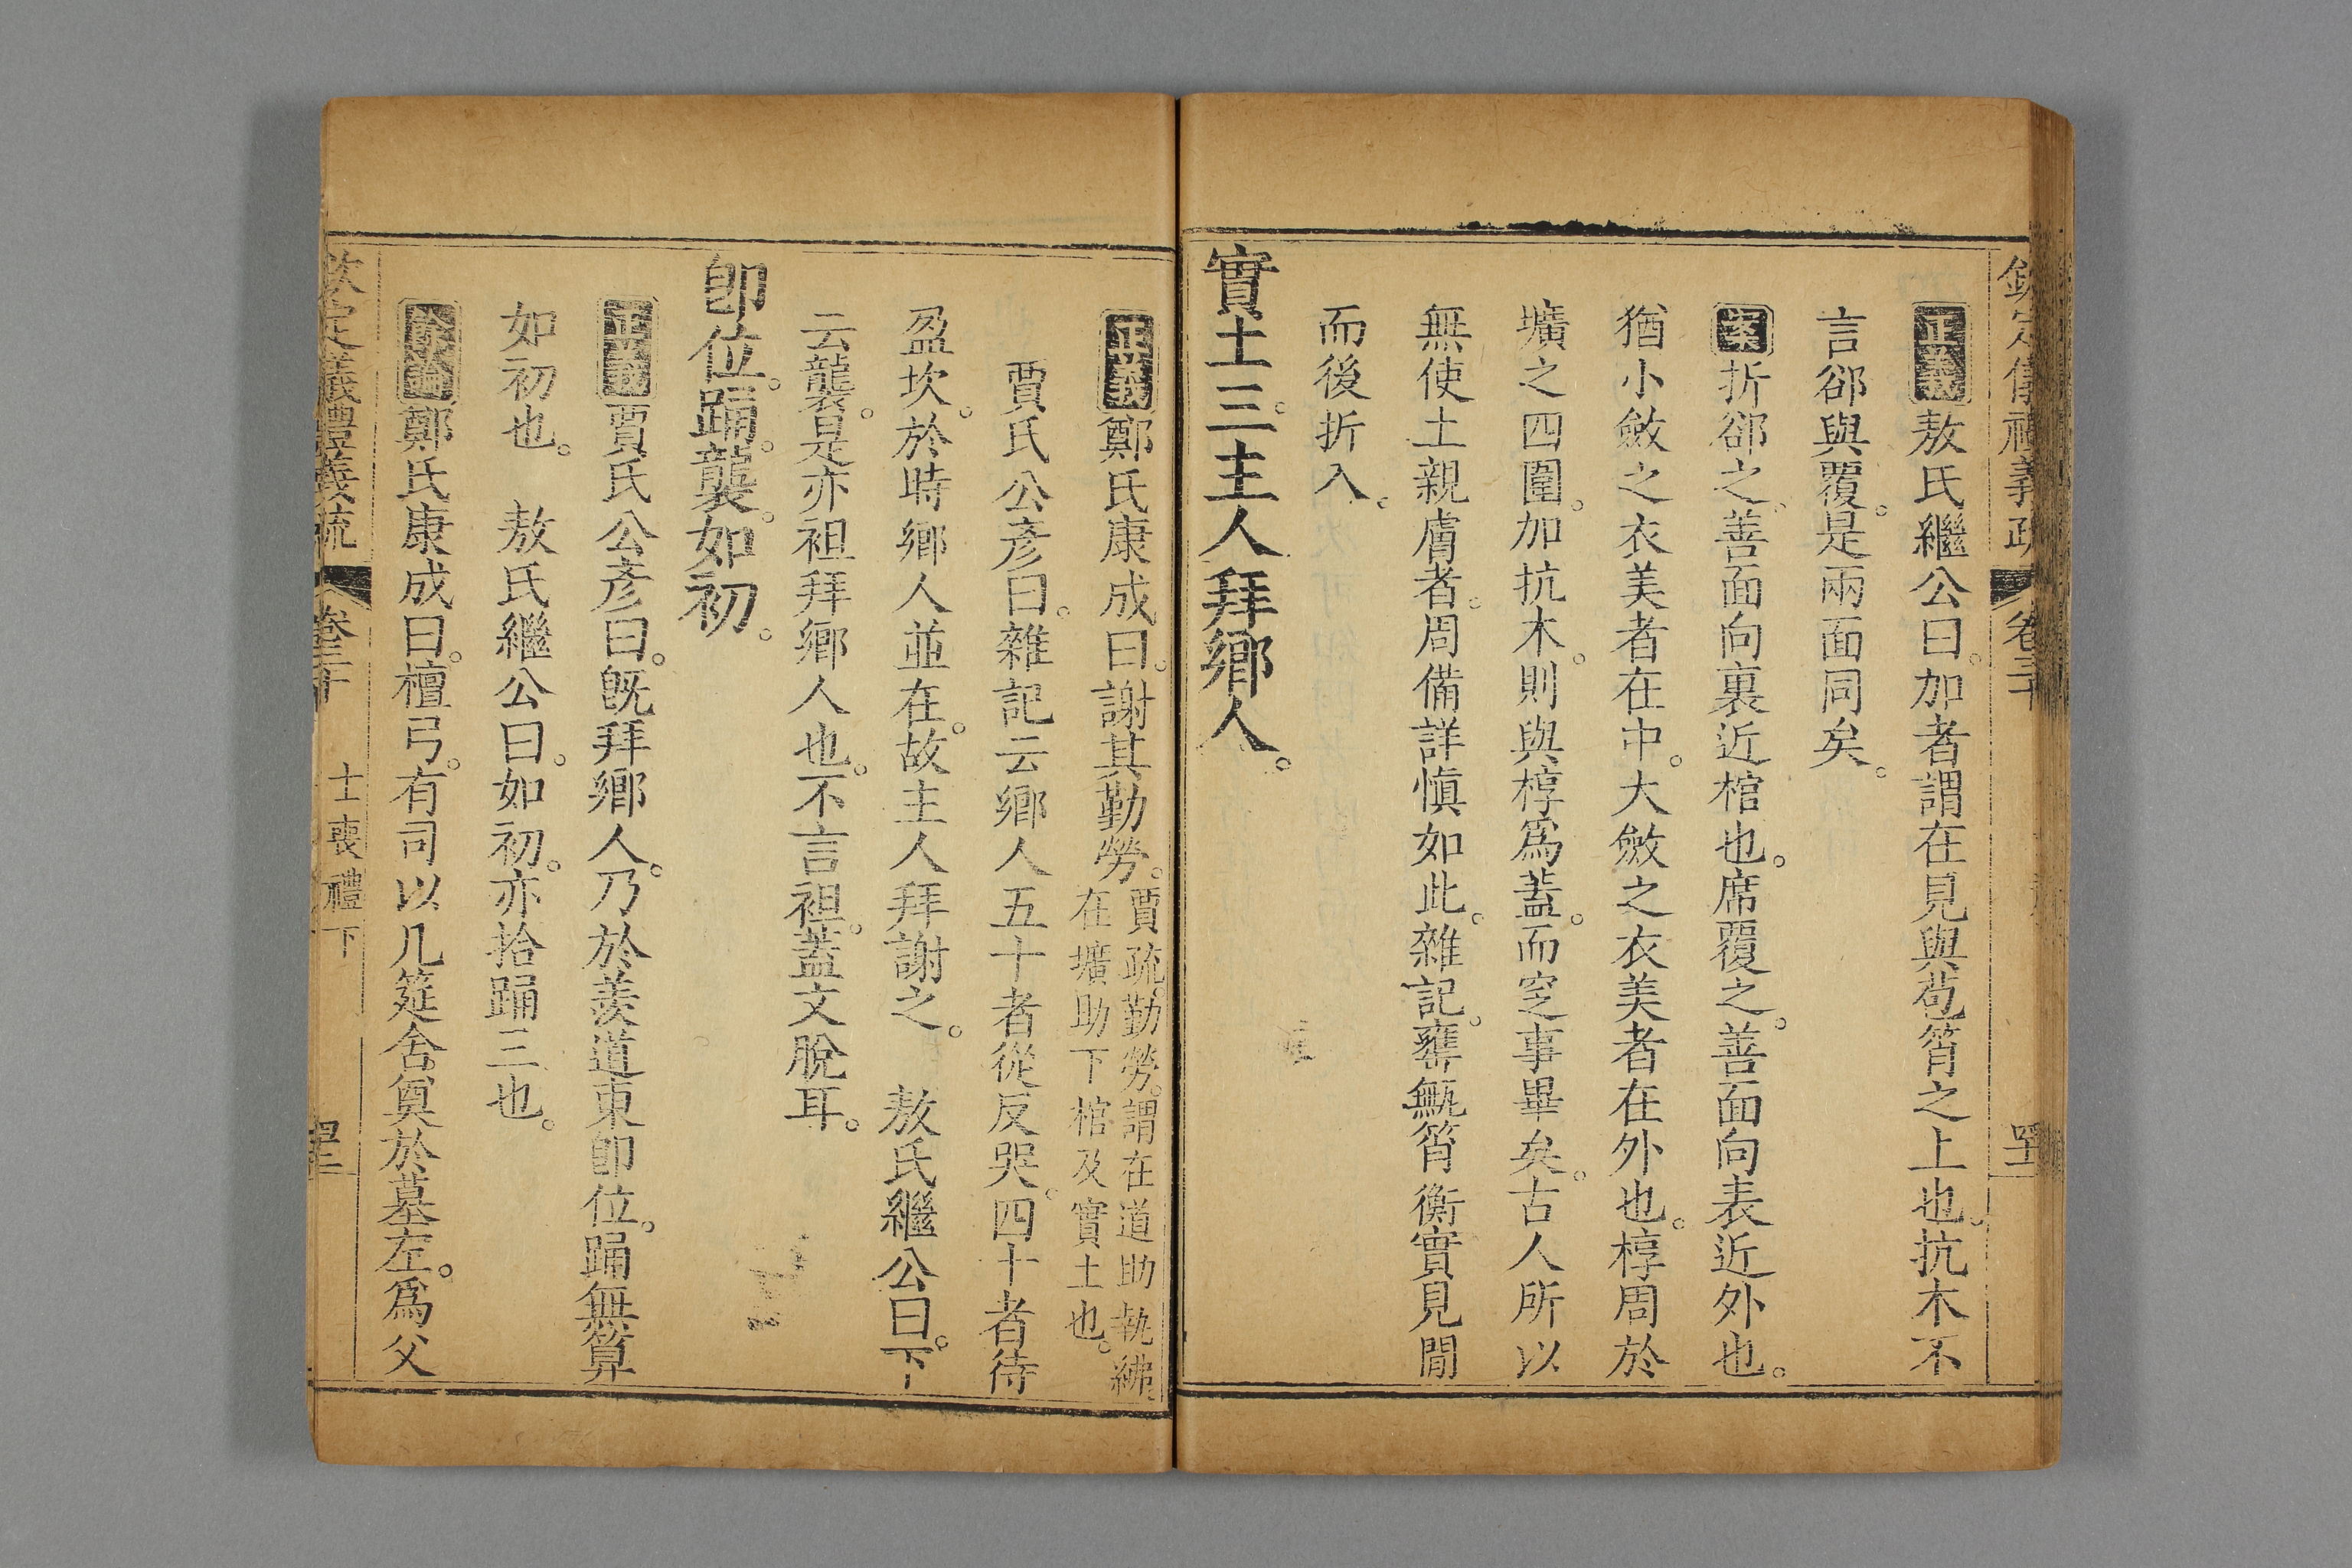 欽定儀禮義疏 卷三十
正義敖氏繼公曰。加者謂在見與苞筲之上也。抗木不
言郤與覆。是兩面同矣。
案折郤之善面向裏近棺也。席覆之。善面向表近外也。
猶小斂之衣美者在中。大斂之衣美者在外也。椁周於
壙之四圍。加抗木。則與椁爲蓋。而窆事畢矣。古人所以
無使土親膚者。周備詳愼如此。雜記。甕甒筲衡實見閒
而後折入。
實土三。主人拜鄉人。
正義鄭氏康成曰。謝其勤勞。賈疏。勤勞。謂在道助執紼。
在壙助下棺及實土也。
賈氏公彥曰。雜記云鄉人五十者從反哭。四十者待
盈坎。於時鄉人並在。故主人拜謝之。 敖氏繼公曰。下
云襲。是亦袒拜鄉人也。不言袒。蓋文脫耳。
卽位。踊。襲。如初。
正義賈氏公彥曰。旣拜鄉人。乃於羨道東卽位。踊無算
如初也。 敖氏繼公曰。如初。亦拾踊三也。
餘論鄭氏康成曰。檀弓。有司以几筵舍奠於墓左。爲父
欽定儀禮義疏 卷三十 士喪禮下